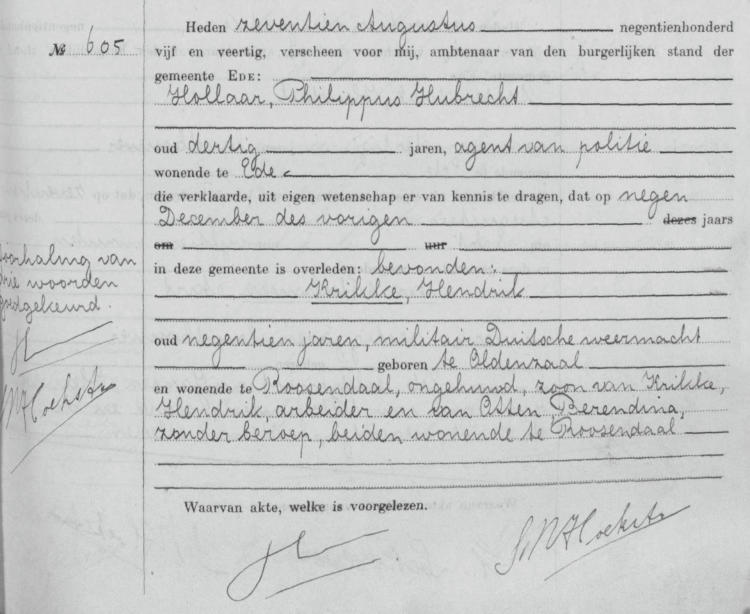 Heden zeventien Augustus negentienhonderd
№ 605
vijf en veertig, verscheen voor mij, ambtenaar van den burgerlijken stand der
gemeente EDE:
Hollaar, Philippus Hubrecht
oud dertig jaren, agent van politie
wonende te Ede
die verklaarde, uit eigen wetenschap er van kennis te dragen, dat op negen
December des vorigen dezes jaars
om uur
in deze gemeente is overleden: bevonden:
Krikke, Hendrik
oud negentien jaren, militair Duitsche weermacht
geboren te Oldenzaal
en wonende te Roosendaal, ongehuwd, zoon van Krikke,
Hendrik, arbeider en van Otten, Berendina,
zonder beroep, beiden wonende te Roosendaal
Waarvan akte, welke is voorgelezen.
oorhaling van
drie woorden
goedgekeurd.